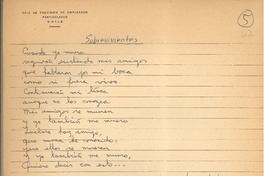 CAJA DE PREVISION DE EMPLEADOS
PARTICULARES
CHILE
5
62
Sobrevivientes
Cuando yo muera
seguirán existiendo mis amigos
que hablaron por mi boca
como si fuera vivos.
Continuarán mi línea
aunque no los conozca
Mis amigos se mueren
y yo también me muero
hay amigo,
que
pero ellos se mueren
y yo también me muero,
Quiero decir con esto...